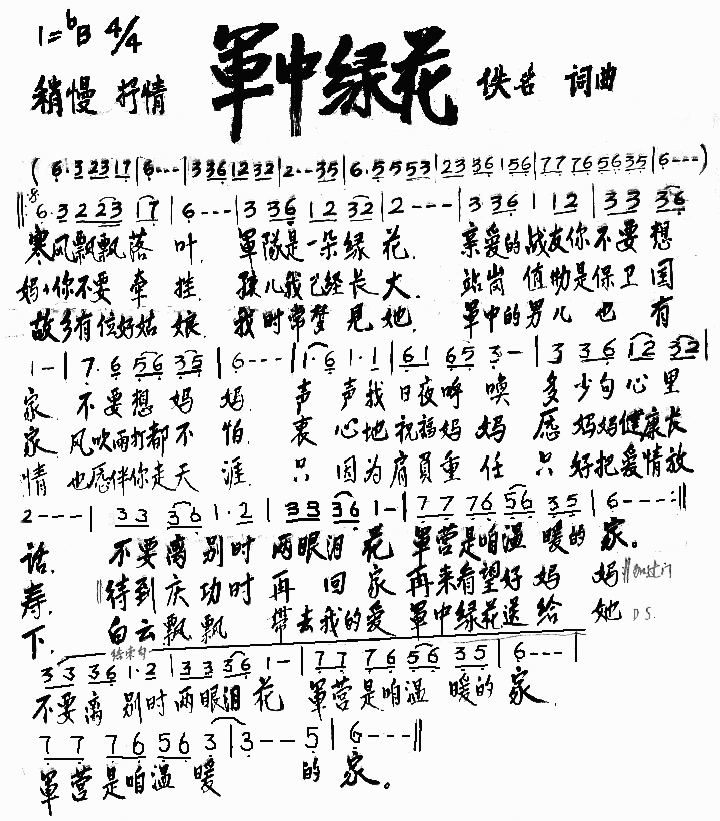 1=♭B 4/4
軍中绿花
稍慢 抒情
佚名 词曲
(6·3 23 17|6---|336 12 32|2--35|6·5 5553|2336 156|777 656 35|6---)
‖:6·3 2 23 17|6---|3 36 12 32|2---|3 36 1 12|33 36
寒风飘飘落 叶. 軍隊是一朵绿 花. 亲爱的战友你不要 想
妈妈你不要 牵 挂. 孩儿我已经长 大. 站岗 值勤是保卫 国
故乡有位好姑 娘. 我时常梦 見 她. 軍中的男儿 也 有
1-|7·6 56 35|6---|1·6 1·1|61 65 3-|3 36 12 32|
家. 不要想 妈 妈. 声 声我 日夜呼 唤 多 少句心里
家 风吹雨打都 不 怕. 衷 心地 祝福妈 妈 愿 妈妈健康长
情 也愿伴你走 天 涯. 只 因为肩員重 任 只 好把爱情放
2---|33 36 1·2|33 336 1-|77 76 56 35|6---:‖
话. 不要离 别时 两眼泪 花 軍营是咱温 暖的 家。
寿. ‖待到庆 功时 再 回 家 再来看望好 妈 妈‖
下. 白云飘飘 带去我的爱 軍中绿花送 给 她 D.S.
结束句
33 36 1·2|33 336 1-|77 76 56 35|6---|
不要离 别时两眼泪 花 軍营是咱温 暖的 家.
77 76 56 3|3--5|6---‖
軍营是咱温 暖 的 家。